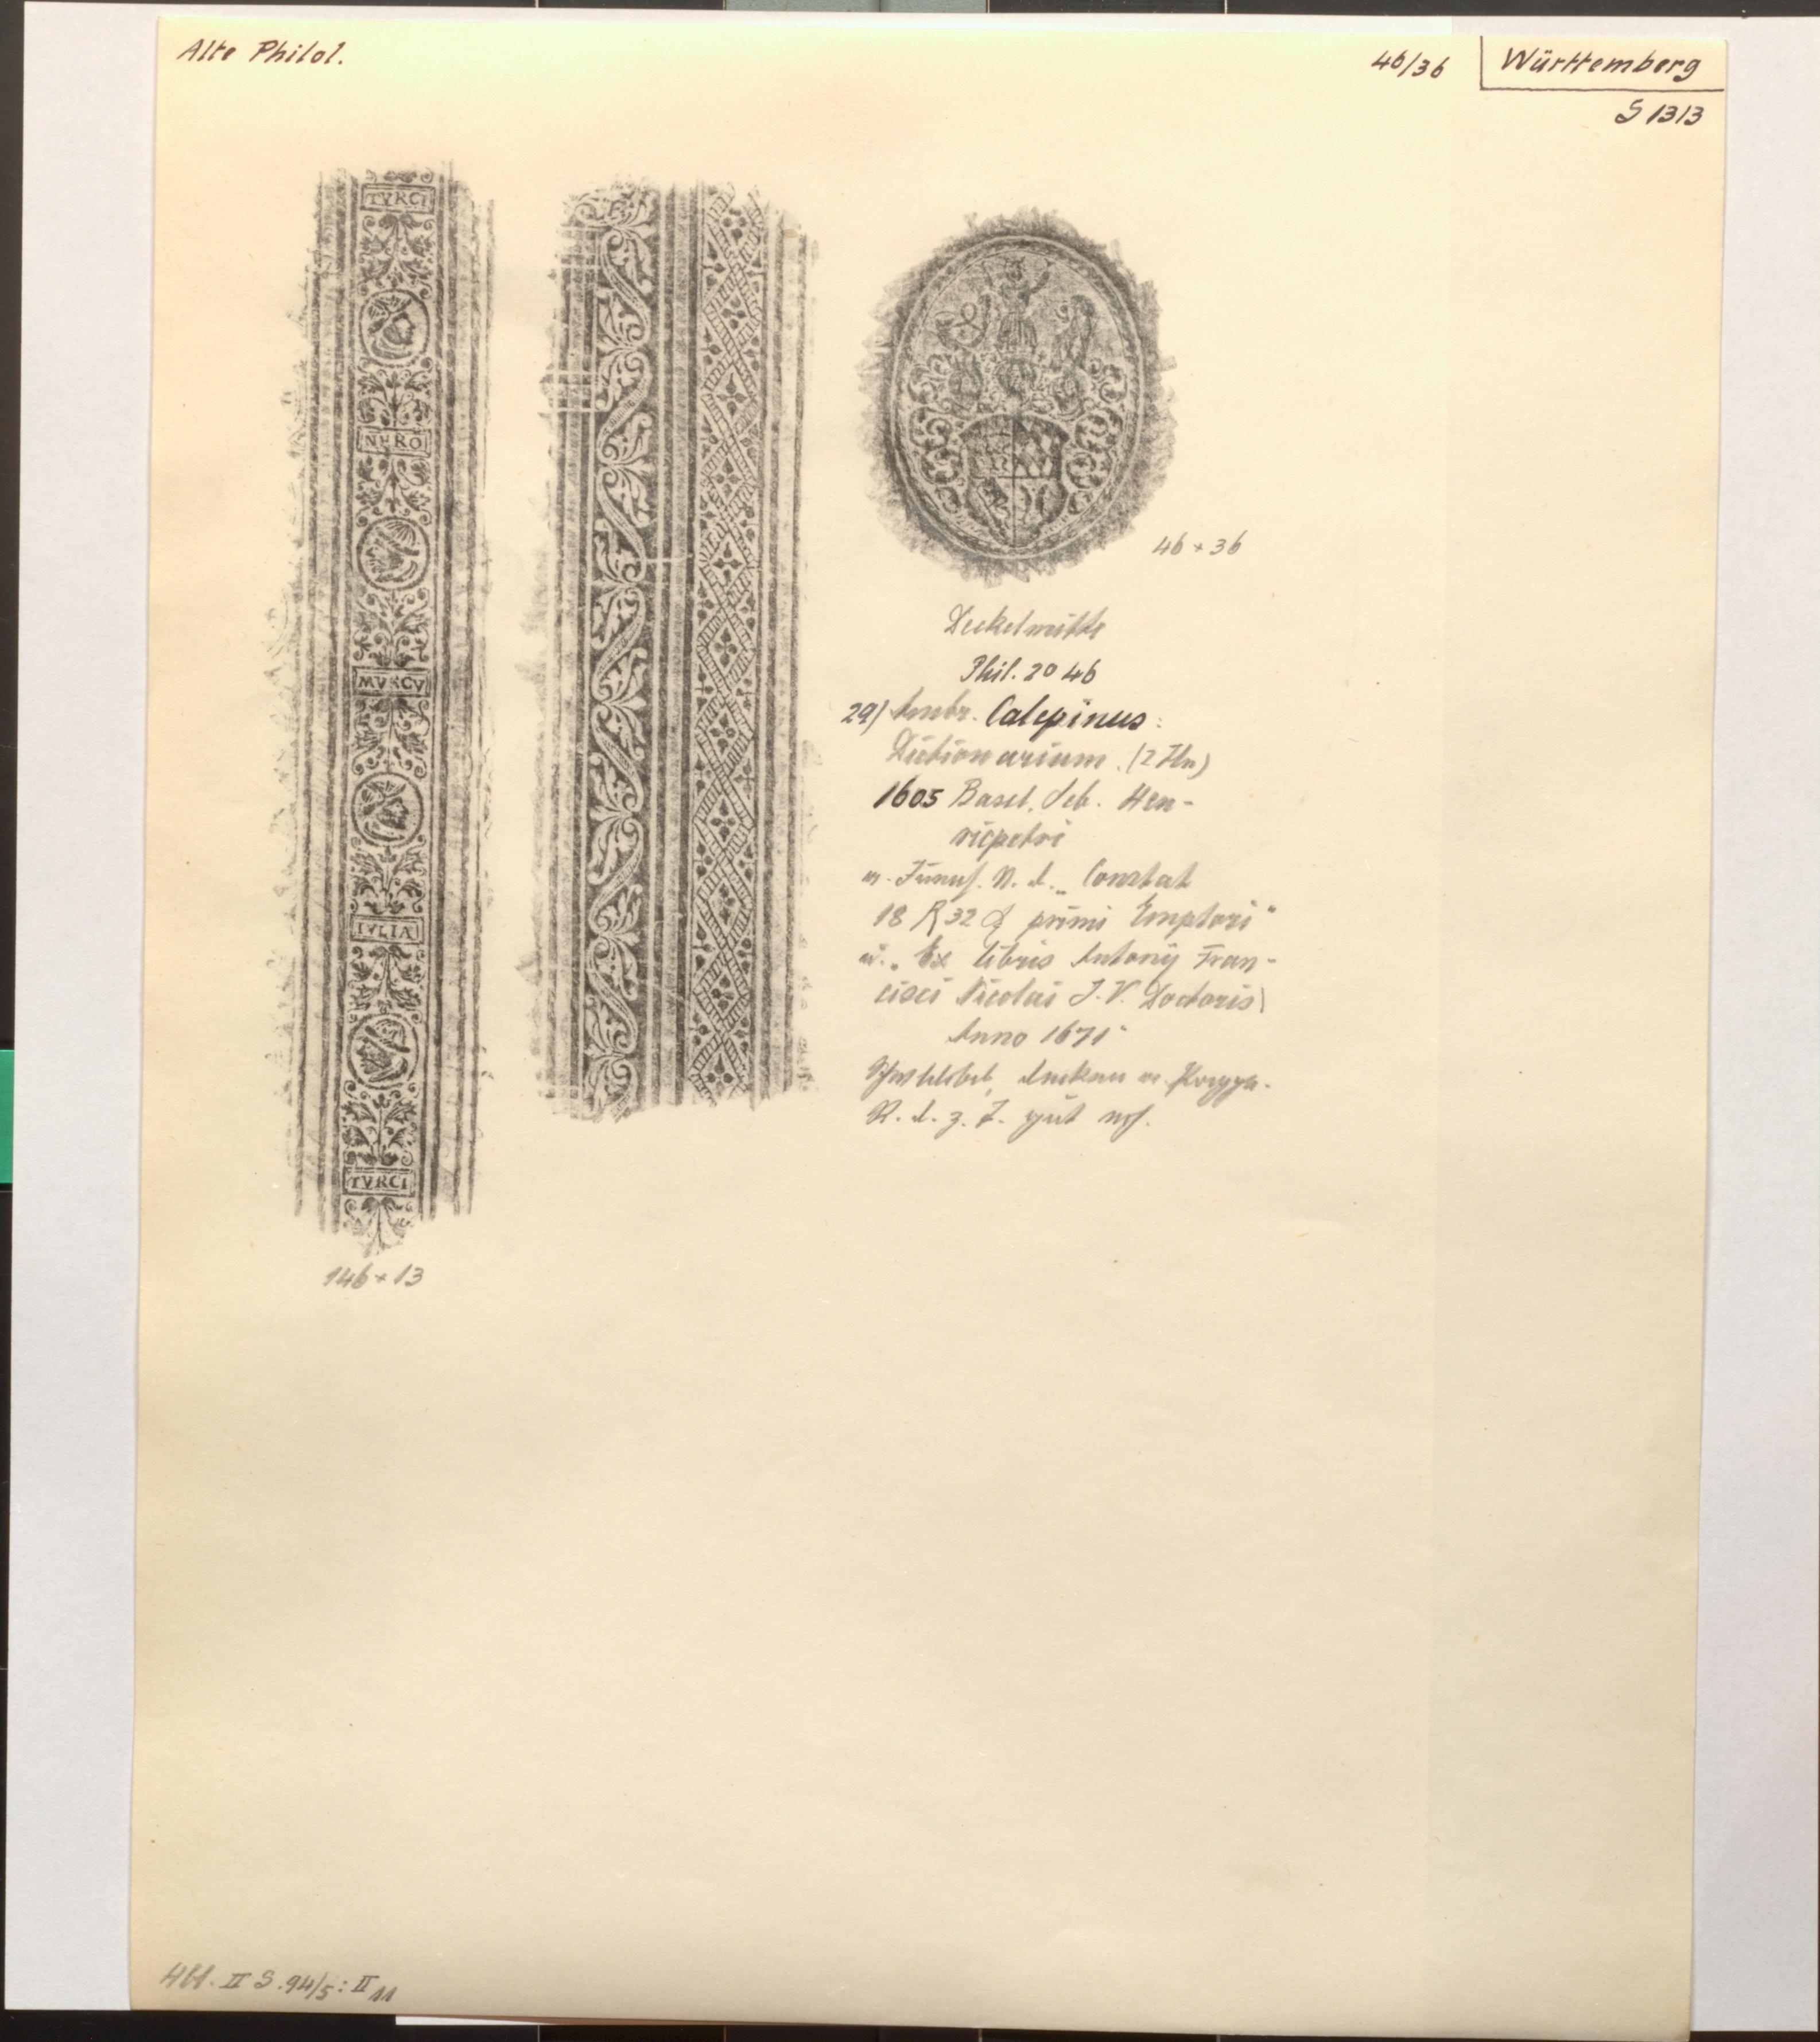 Alte Philol.
46/36
Württemberg
S 1313
TVRCI
NERO
MVRCV
IVLIA
TVRCI
146 × 13
46 × 36
Deckelmitte
Phil. 2° 46
29) Ambr. Calepinus:
Dictionarium. (2 Tle)
1605 Basel, Seb. Hen-
ricpetri
"Constat
18 32 primi Emptori"
u. "Ex libris Antonij Fran-
cisci Nicolai J. V. Doctoris
Anno 1671"
R. d. z. T. gut
II S. 94/5: II 11